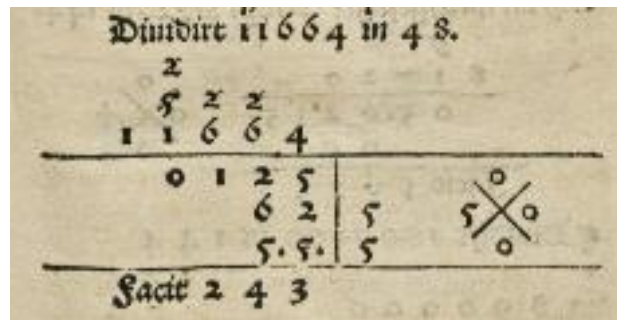 Dividirt 11664 in 48.
2
5 2 2
1 1 6 6 4
0 1 2 5 0
6 2 5 5 0
5. 5. 5 0
Facit 2 4 3